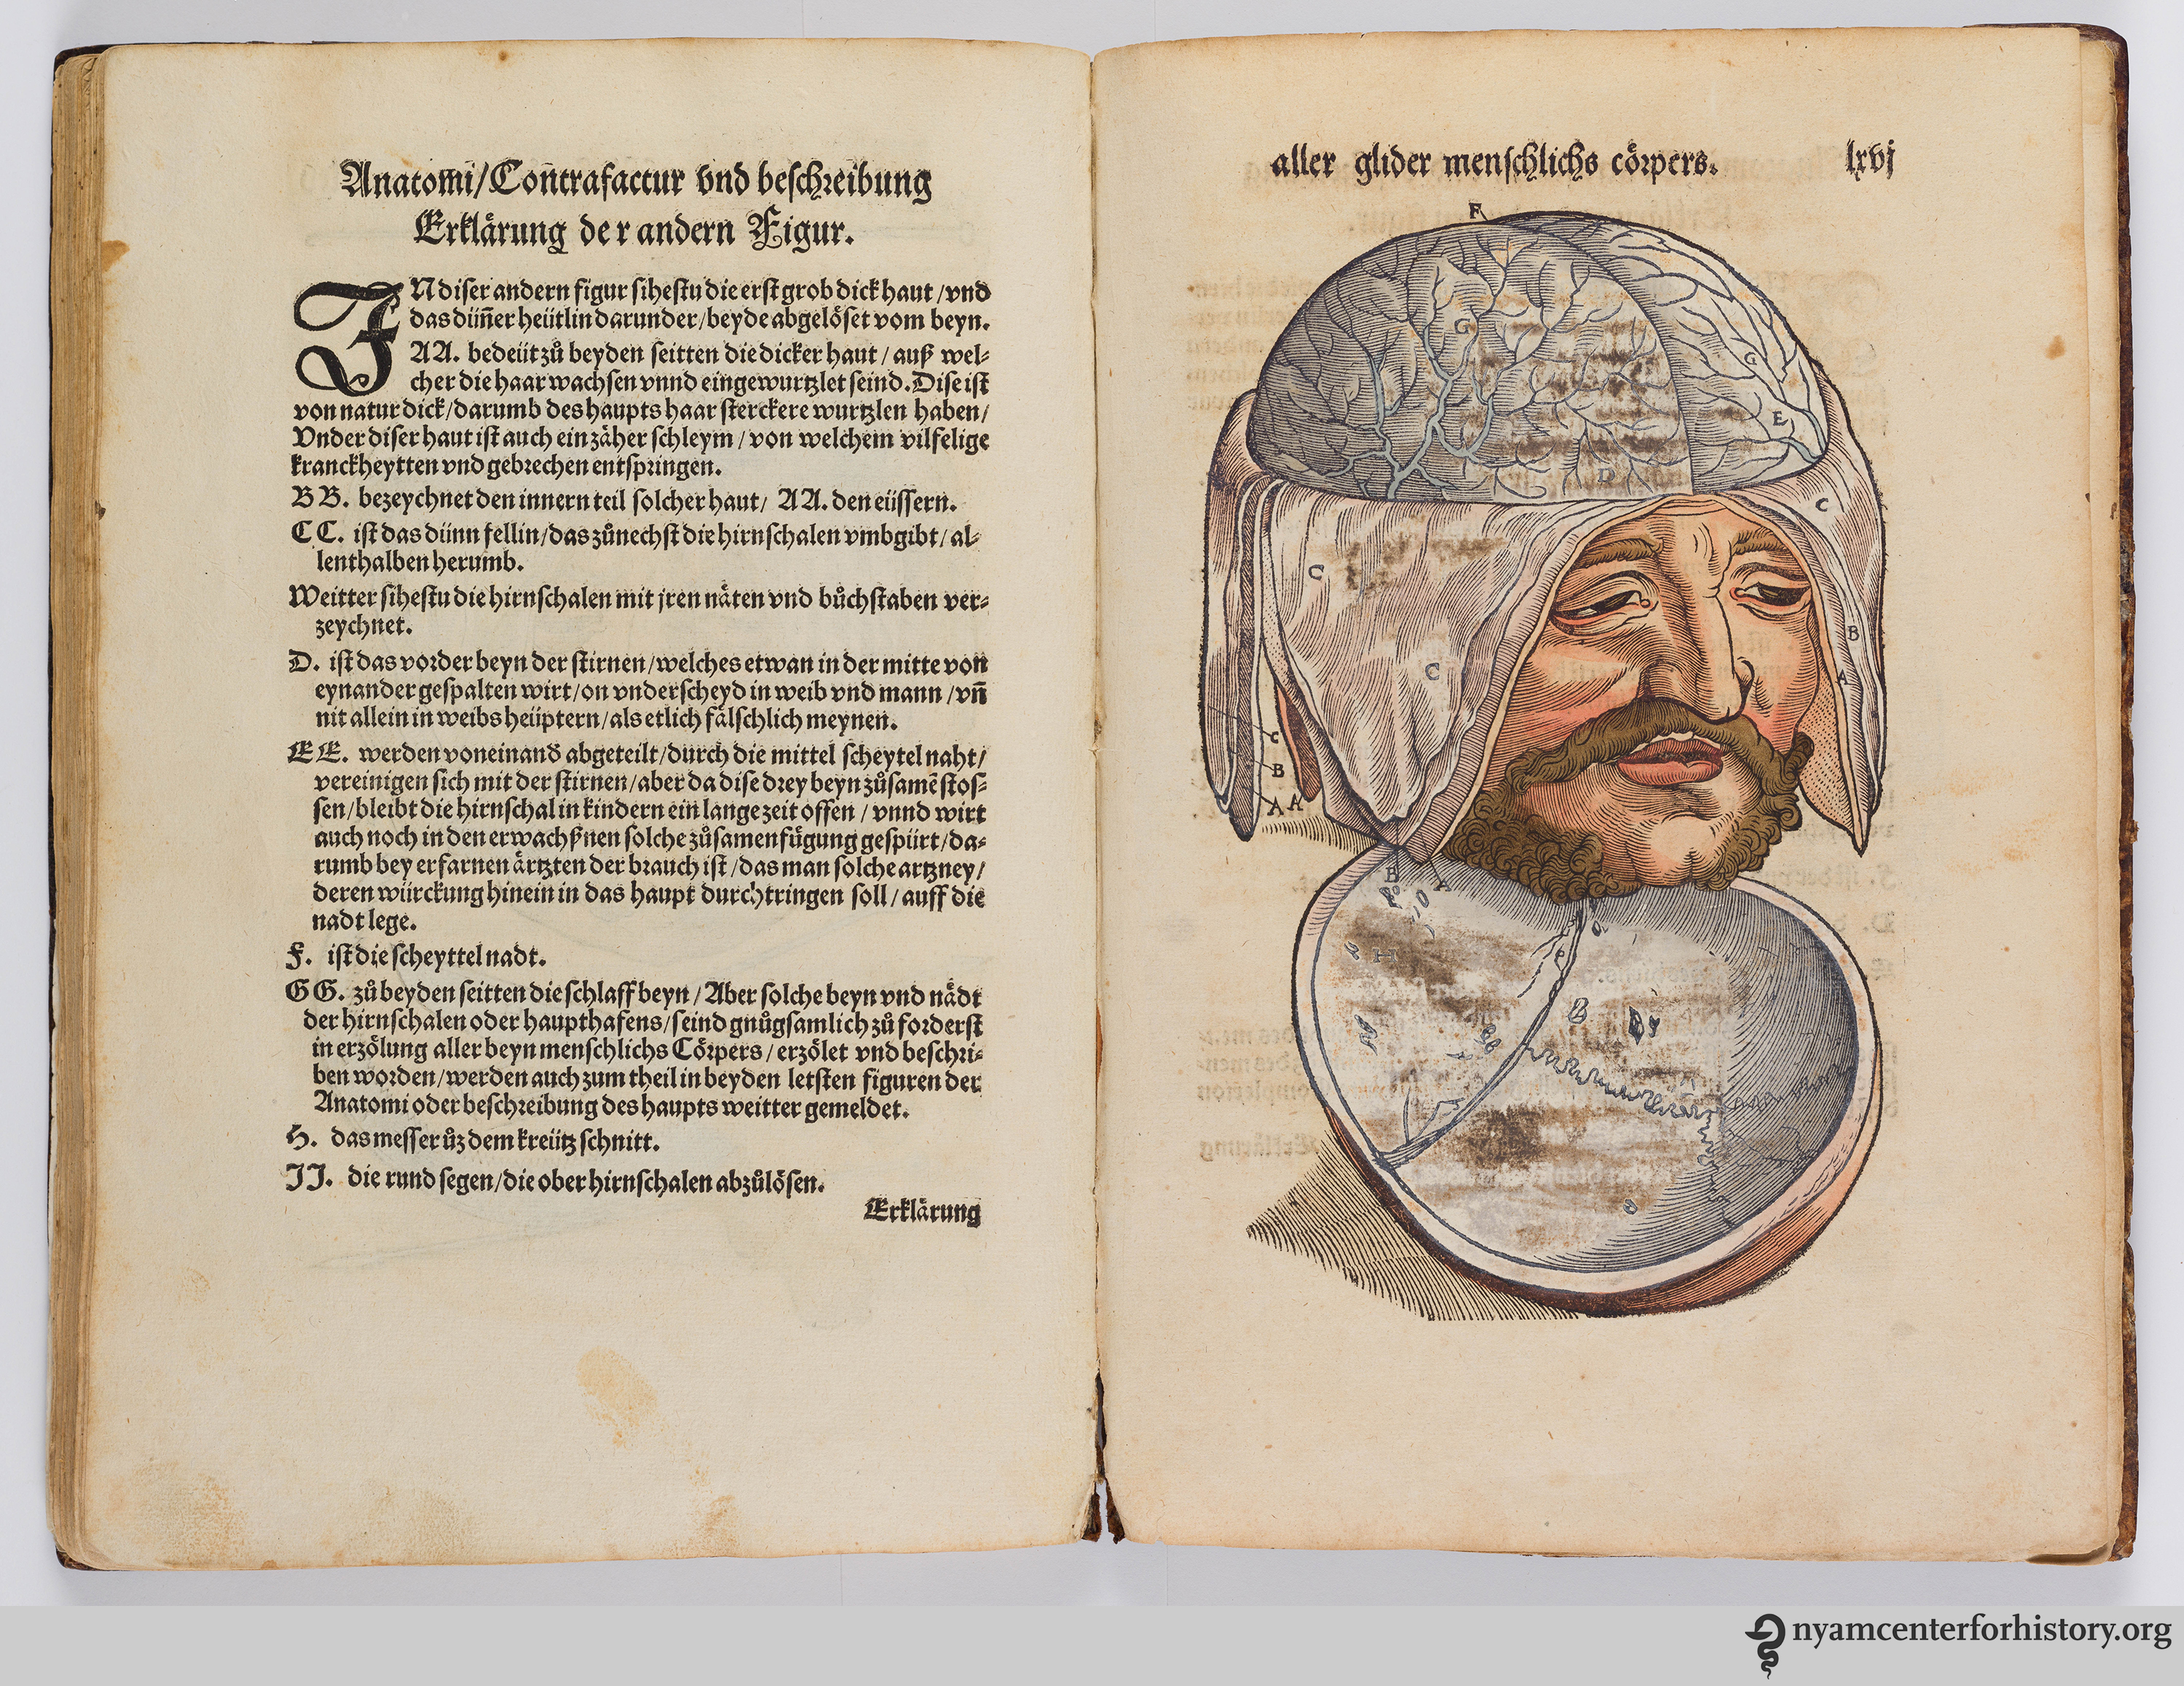 Anatom̃i/Contrafactur vnd beschreibung
Erklärung der andern Figur.
IN diser andern figur sihestu die erst grob dick haut/vnd
das dün̄er heütlin darunder/beyde abgelöset vom beyn.
AA. bedeüt zů beyden seitten die dicker haut/auß wel-
cher die haar wachsen vnnd eingewurtzlet seind. Dise ist
von natur dick/darumb des haupts haar sterckere wurtzlen haben/
Vnder diser haut ist auch ein zäher schleym/von welchem vilfelige
kranckheytten vnd gebrechen entspringen.
BB. bezeychnet den innern teil solcher haut/ AA. den eüssern.
CC. ist das dünn fellin/das zůnechst die hirnschalen vmbgibt/al-
lenthalben herumb.
Weitter sihestu die hirnschalen mit jren näten vnd bůchstaben ver-
zeychnet.
D. ist das vorder beyn der stirnen/welches etwan in der mitte von
eynander gespalten wirt/on vnderscheyd in weib vnd mann/vn̄
nit allein in weibs heüptern/als etlich fälschlich meynen.
EE. werden voneinand abgeteilt/durch die mittel scheytel naht/
vereinigen sich mit der stirnen/aber da dise drey beyn zůsamē stos-
sen/bleibt die hirnschal in kindern ein lange zeit offen/vnnd wirt
auch noch in den erwachßnen solche zůsamenfügung gespürt/da-
rumb bey erfarnen ärtzten der brauch ist/das man solche artzney/
deren würckung hinein in das haupt durchtringen soll/auff die
nadt lege.
F. ist die scheyttel nadt.
GG. zů beyden seitten die schlaff beyn/Aber solche beyn vnd nädt
der hirnschalen oder haupthafens/seind gnůgsamlich zů forderst
in erzölung aller beyn menschlichs Cörpers/erzölet vnd beschri-
ben worden/werden auch zum theil in beyden letsten figuren der
Anatomi oder beschreibung des haupts weitter gemeldet.
H. das messer ůz dem kreütz schnitt.
II. die rund segen/die ober hirnschalen abzůlösen.
Erklärung
aller glider menschlichs cörpers. lxvj
F
G
G
E
D
C
C
C
B
A
C
B
A A
B
A
H
B
nyamcenterforhistory.org